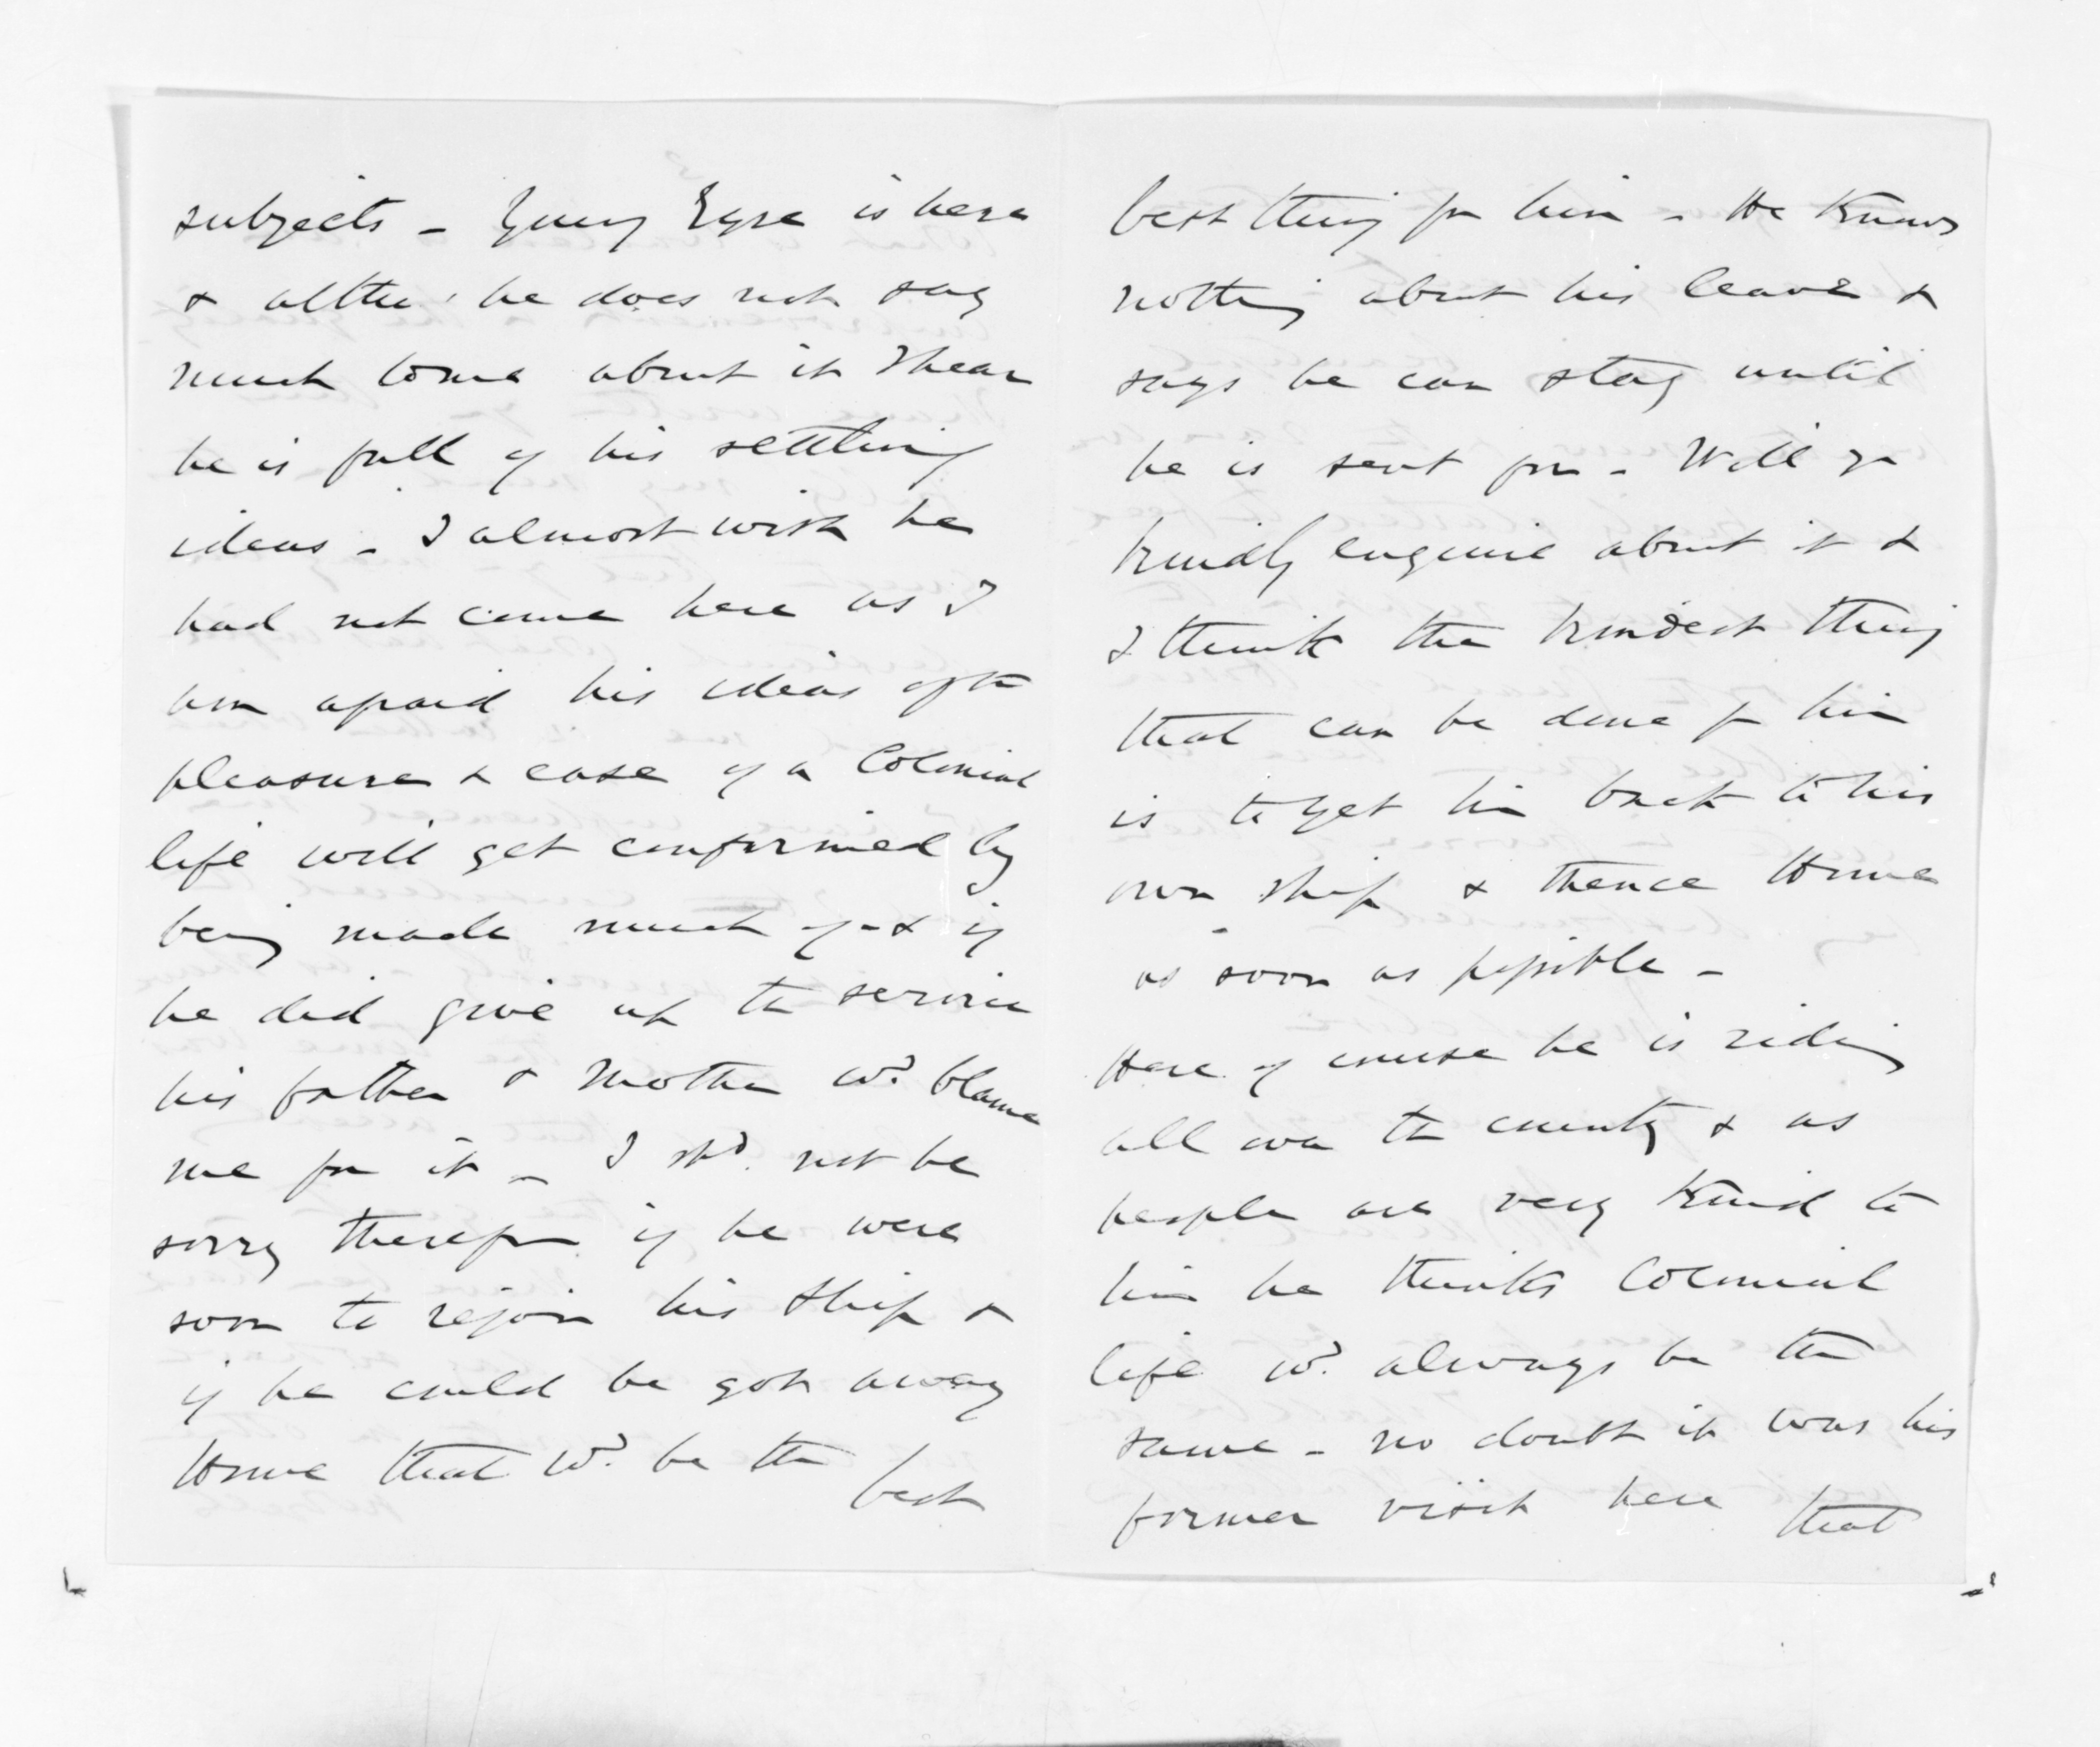 subjects - Young Eyre is here
& altho' he does not say
much to me about it I hear
he is full of his settling
ideas - I almost wish he
had not come here as I
am afraid his ideas of the
pleasure & ease of a Colonial
life will get confirmed by
being made much of - & if
he did give up the service
his father & Mother wd. blame
me for it - I shd. not be
sorry therefor if he were
soon to rejoin his ship &
if he could be got away
Home that wd. be the
best
best thing for him - He knows
nothing about his leave &
says he can stay until
he is sent for - Will yo
kindly enquire about it &
I think the kindest thing
that can be done for him
is to get him back to his
own ship & thence Home
as soon as possible -
Here of course he is riding
all over the country & as
people are very kind to
him he thinks Colonial
life wd. always be the
same - no doubt it was his
former visit here that